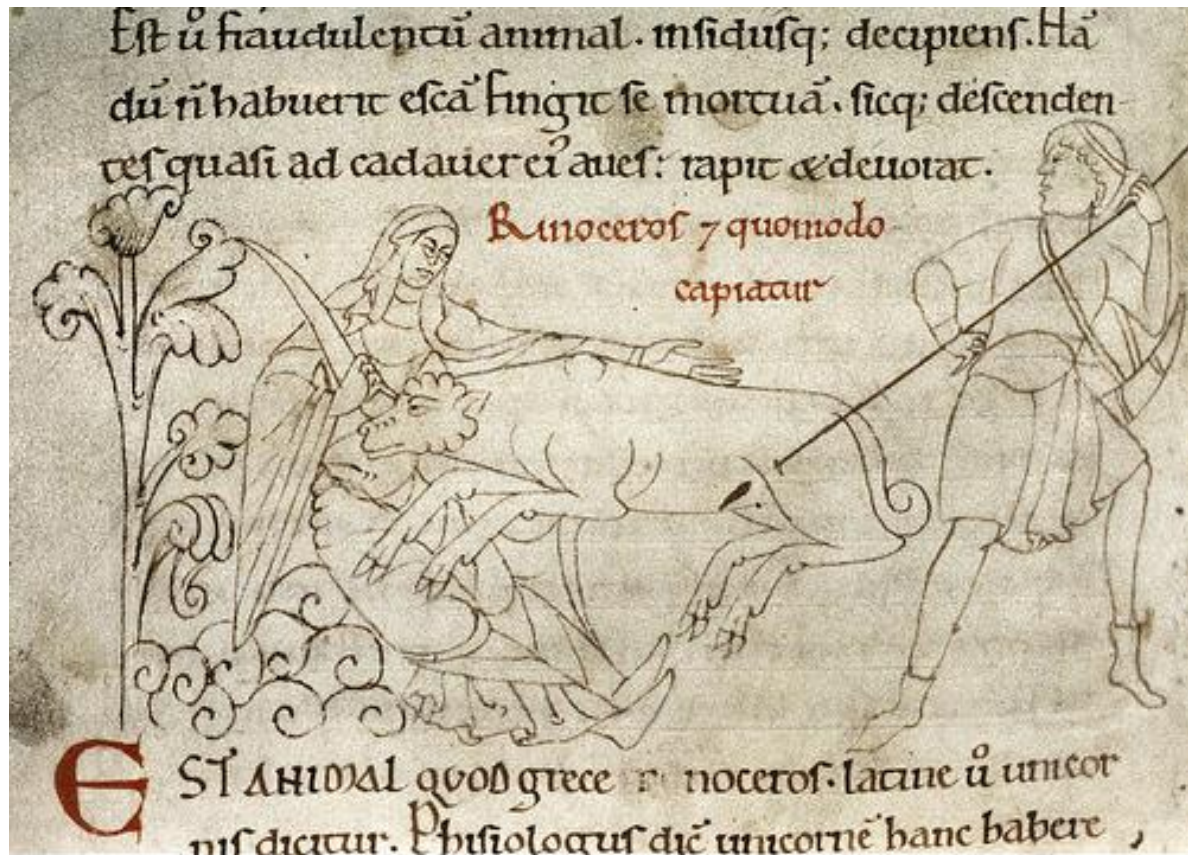 Est ů fraudulentū animal. insidiisq; decipiens. Nā
dū ñ habuerit escā fingit se mortuā. sicq; descenden
tes quasi ad cadauer ei᾽ aues: rapit & deuorat.
Rinoceros ⁊ quomodo
capiatur
EST ANIMAL QUOD grece rinoceros. latine ů unicor
nis dicitur. Phisiologus dic̄ unicornē hanc habere